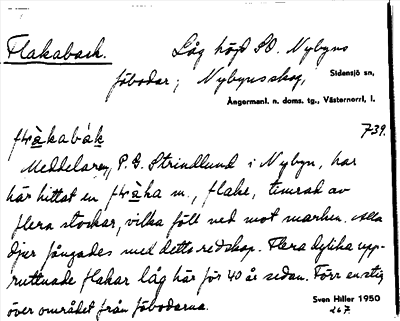 Flakaback. Låg höjd SO. Nybyns
fäbodar; Nybynsskog, Sidensjö sn,
Ångermanl. n. doms. tg., Västernorrl. l.
739.
Meddelaren, P. G. Strindlund i Nybyn, har
här hittat en m., flake, timrad av
flera stockar, vilka föll ned mot marken. Alla
djur fångades med detta redskap. Flera dylika upp-
ruttnade flakar låg här för 40 år sedan. Förr en stig
över området från fäbodarna.
Sven Hiller 1950
267.